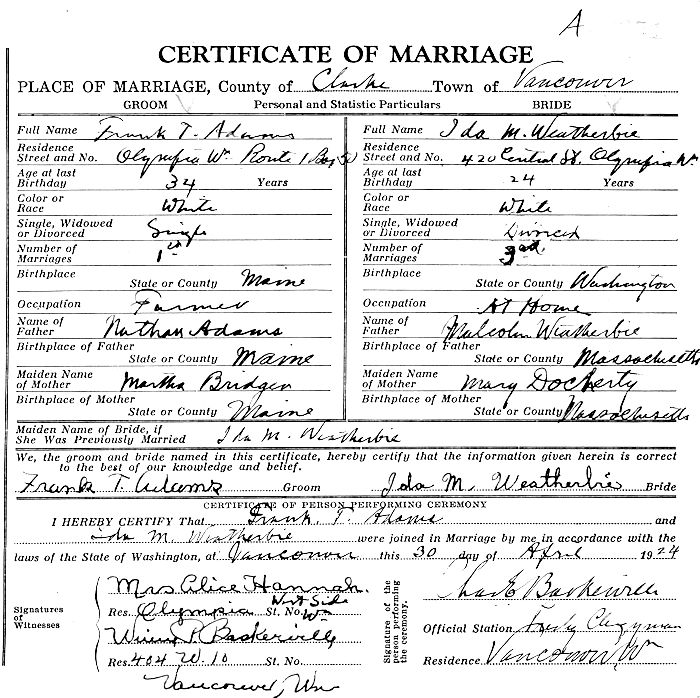 A
CERTIFICATE OF MARRIAGE
PLACE OF MARRIAGE, County of Clarke Town of Vancouver
GROOM Personal and Statistic Particulars BRIDE
Full Name Frank T. Adams Full Name Ida M. Weatherbie
Residence Residence
Street and No. Olympia Wn Route 1 Box 50 Street and No. 420 Central St. Olympia Wn
Age at last Age at last
Birthday 34 Years Birthday 24 Years
Color or Color or
Race White Race White
Single, Widowed Single, Widowed
or Divorced Single or Divorced Divorced
Number of Number of
Marriages 1st Marriages 3rd.
Birthplace Birthplace
State or County Maine State or County Washington
Occupation Farmer Occupation At Home
Name of Name of
Father Nathan Adams Father Malcolm Weatherbie
Birthplace of Father Birthplace of Father
State or County Maine State or County Massachusetts
Maiden Name Maiden Name
of Mother Martha Bridgen of Mother Mary Docherty
Birthplace of Mother Birthplace of Mother
State or County Maine State or County Massachusetts
Maiden Name of Bride, if
She Was Previously Married Ida M. Weatherbie
We, the groom and bride named in this certificate, hereby certify that the information given herein is correct
to the best of our knowledge and belief.
Frank T. Adams Groom Ida M. Weatherbie Bride
CERTIFICATE OF PERSON PERFORMING CEREMONY
I HEREBY CERTIFY That Frank. T. Adams and
Ida M. Weatherbie were joined in Marriage by me in accordance with the
laws of the State of Washington, at Vancouver this 30 day of April 1924
Signatures
of
Witnesses
Mrs Alice Hannah.
West Side
Res. Olympia St. No. Wn
P. Baskerville
Res. 404 W. 10 St. No.
Vancouver, Wn
Signature of the
person performing
the ceremony.
Chas E Baskerville
Official Station Clergyman
Residence Vancouver, Wn